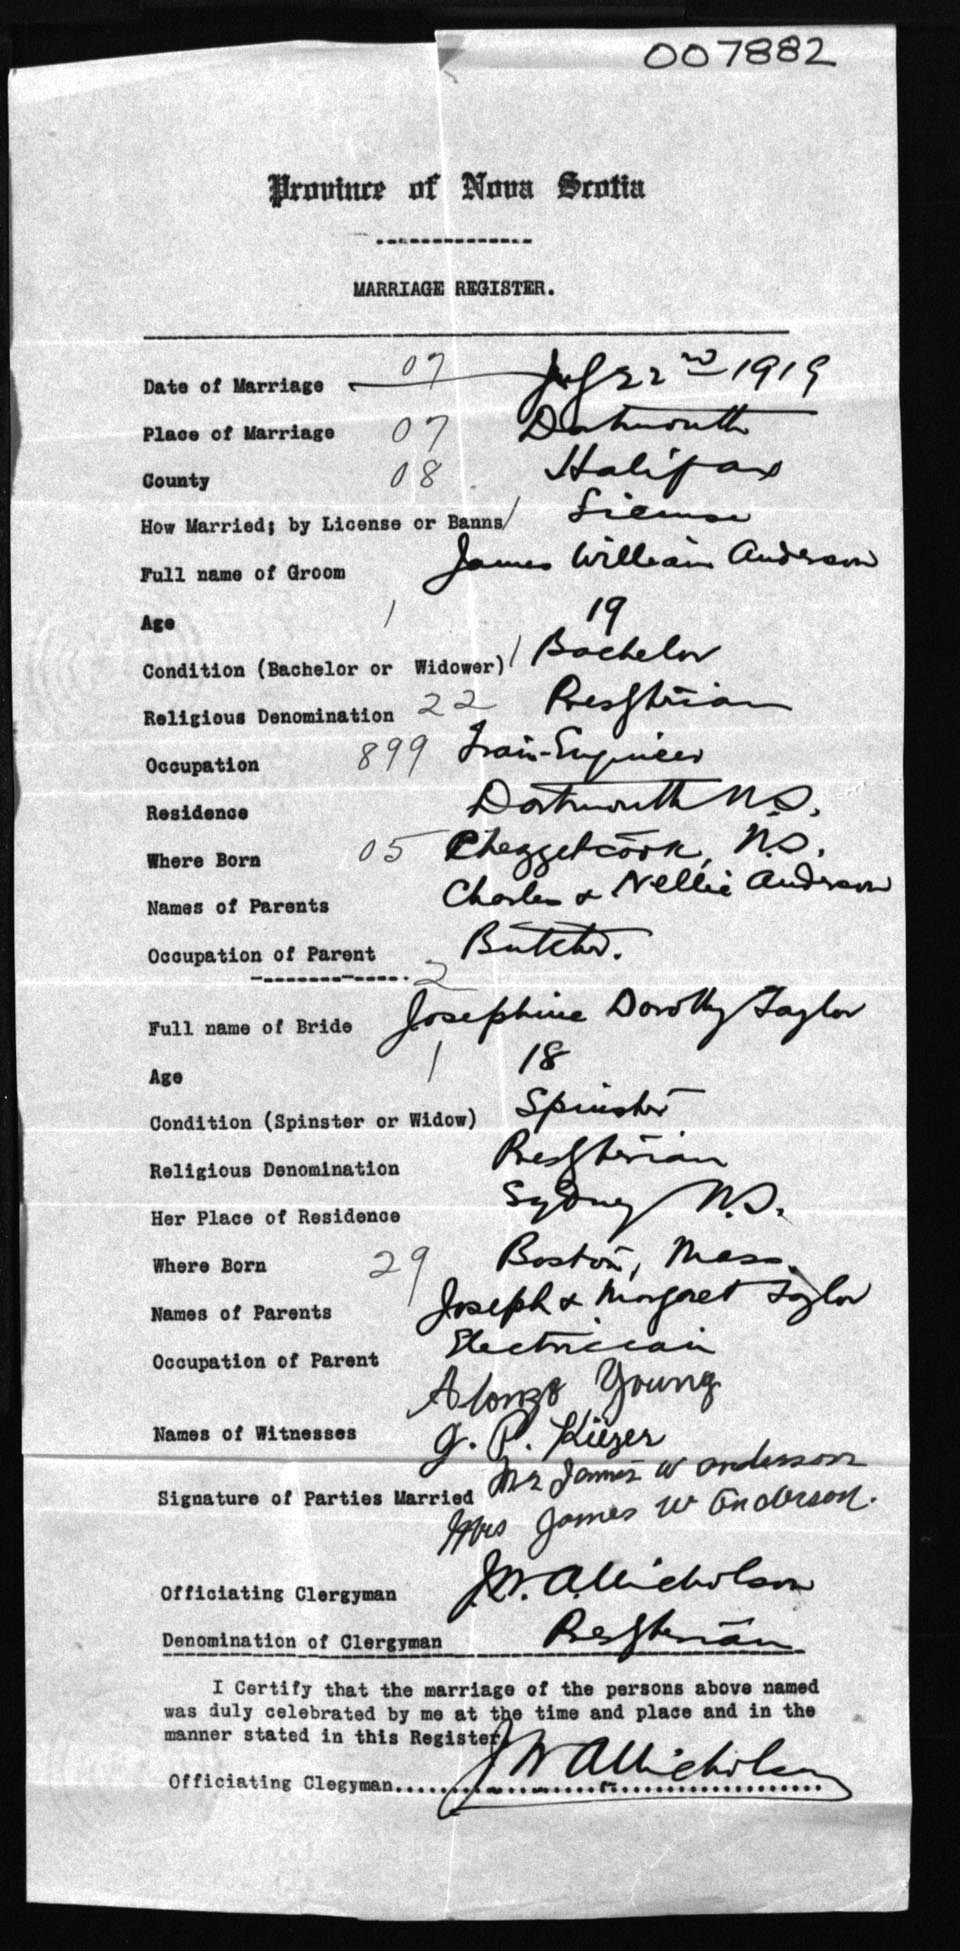 007882
Province of Nova Scotia
MARRIAGE REGISTER.
Date of Marriage 07 July 22nd 1919
Place of Marriage 07 Dartmouth
County 08 Halifax
How Married; by License or Banns / License
Full name of Groom James William Anderson
Age 1 19
Condition (Bachelor or Widower) / Bachelor
Religious Denomination 22 Presbyterian
Occupation 899 Train-Engineer
Residence Dartmouth N.S.
Where Born 05 Chezzetcook, N.S.
Names of Parents Charles & Nellie Anderson
Occupation of Parent Butcher.
2
Full name of Bride Josephine Dorothy Taylor
Age 1 18
Condition (Spinster or Widow) Spinster
Religious Denomination Presbyterian
Her Place of Residence Sydney N.S.
Where Born 29 Boston, Mass.
Names of Parents Joseph & Margaret Taylor
Occupation of Parent Electrician
Alonzo Young
Names of Witnesses G. P. Kiezer
Mr James W Anderson
Signature of Parties Married
Mrs James W Anderson.
Officiating Clergyman J.W.A. Nicholson
Denomination of Clergyman Presbyterian
I Certify that the marriage of the persons above named
was duly celebrated by me at the time and place and in the
manner stated in this Register.
Officiating Clegyman.... J W A Nicholson